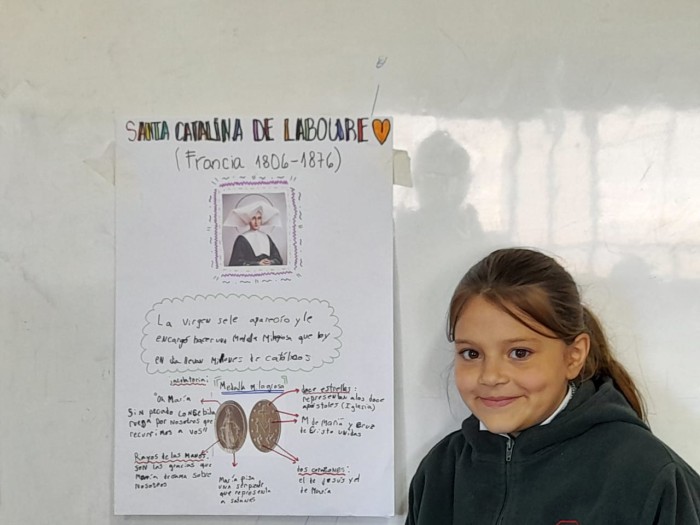 SANTA CATALINA DE LABOURE
(Francia 1806-1876)
La virgen se le apareció y le
encargó hacer una medalla milagrosa que hoy
en día llevan millones de católicos
Jaculatoria:
"Oh María
Sin pecado concebida
ruega por nosotros que
recurrimos a vos"
Medalla milagrosa
doce estrellas:
representan a los doce
apóstoles (Iglesia)
M de María y cruz
de Cristo unidas
Rayos de las manos:
son las gracias que
María derrama sobre
nosotros
María pisa
una serpiente
que representa
a satanás
dos corazones:
el de Jesús y el
de María